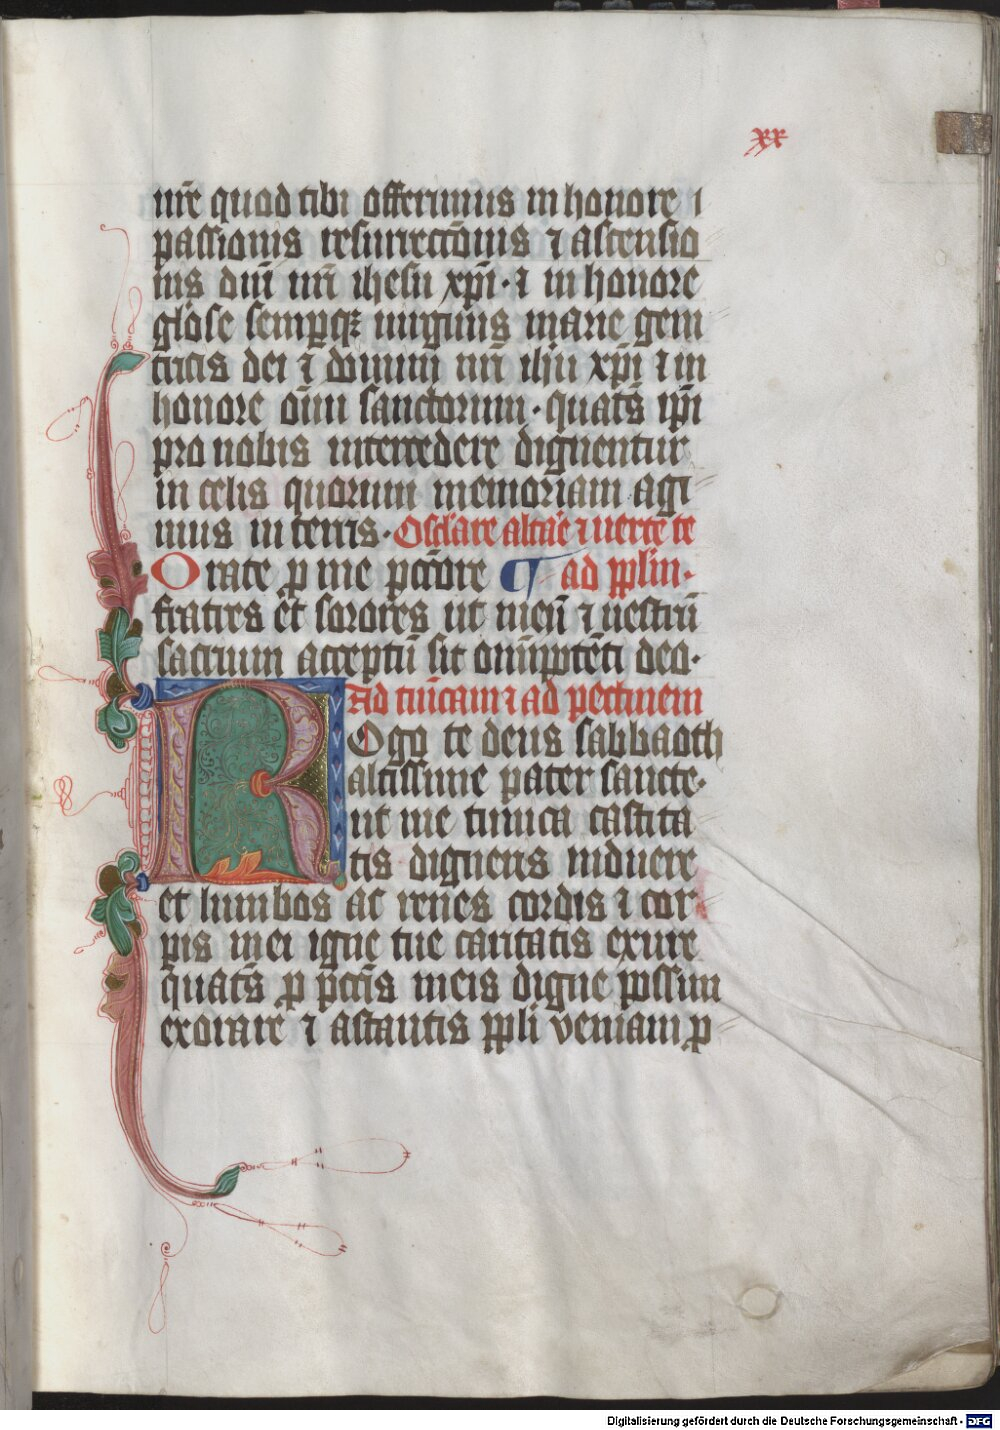 xx
nr̄e quod tibi offerimus in honore
passionis resurrectōnis ⁊ ascensio
nis dn̄i nr̄i ihesu xp̄i · ⁊ in honore
gl̄ose semꝑqꝫ uirginis marie geni
tricis dei ⁊ domini nr̄i ih̄u xp̄i ⁊ in
honore om̄i sanctorum · quats̄ ip̄i
pro nobis intercedere dignentur
in celis quorum memoriam agi
mus in terris · Osc̄lare altar̄e ⁊ uerte te
Orate ꝓ me pctōre ¶ ad pp̄lm ·
fratres et sorores ut meū ⁊ uestrū
sacrum acceptū sit om̄ipotēti deo ·
Ad tunicam ⁊ ad pectinem
ROgo te deus sabbaoth
altissime pater sancte ·
ut me tunica castita
tis digneris induere
et lumbos ac renes cordis ⁊ cor
pis mei igne tue caritatis exure
quats̄ ꝓ pctīs meis digne possim
exorare ⁊ astantis pp̄li veniam ꝓ
Digitalisierung gefördert durch die Deutsche Forschungsgemeinschaft - DFG